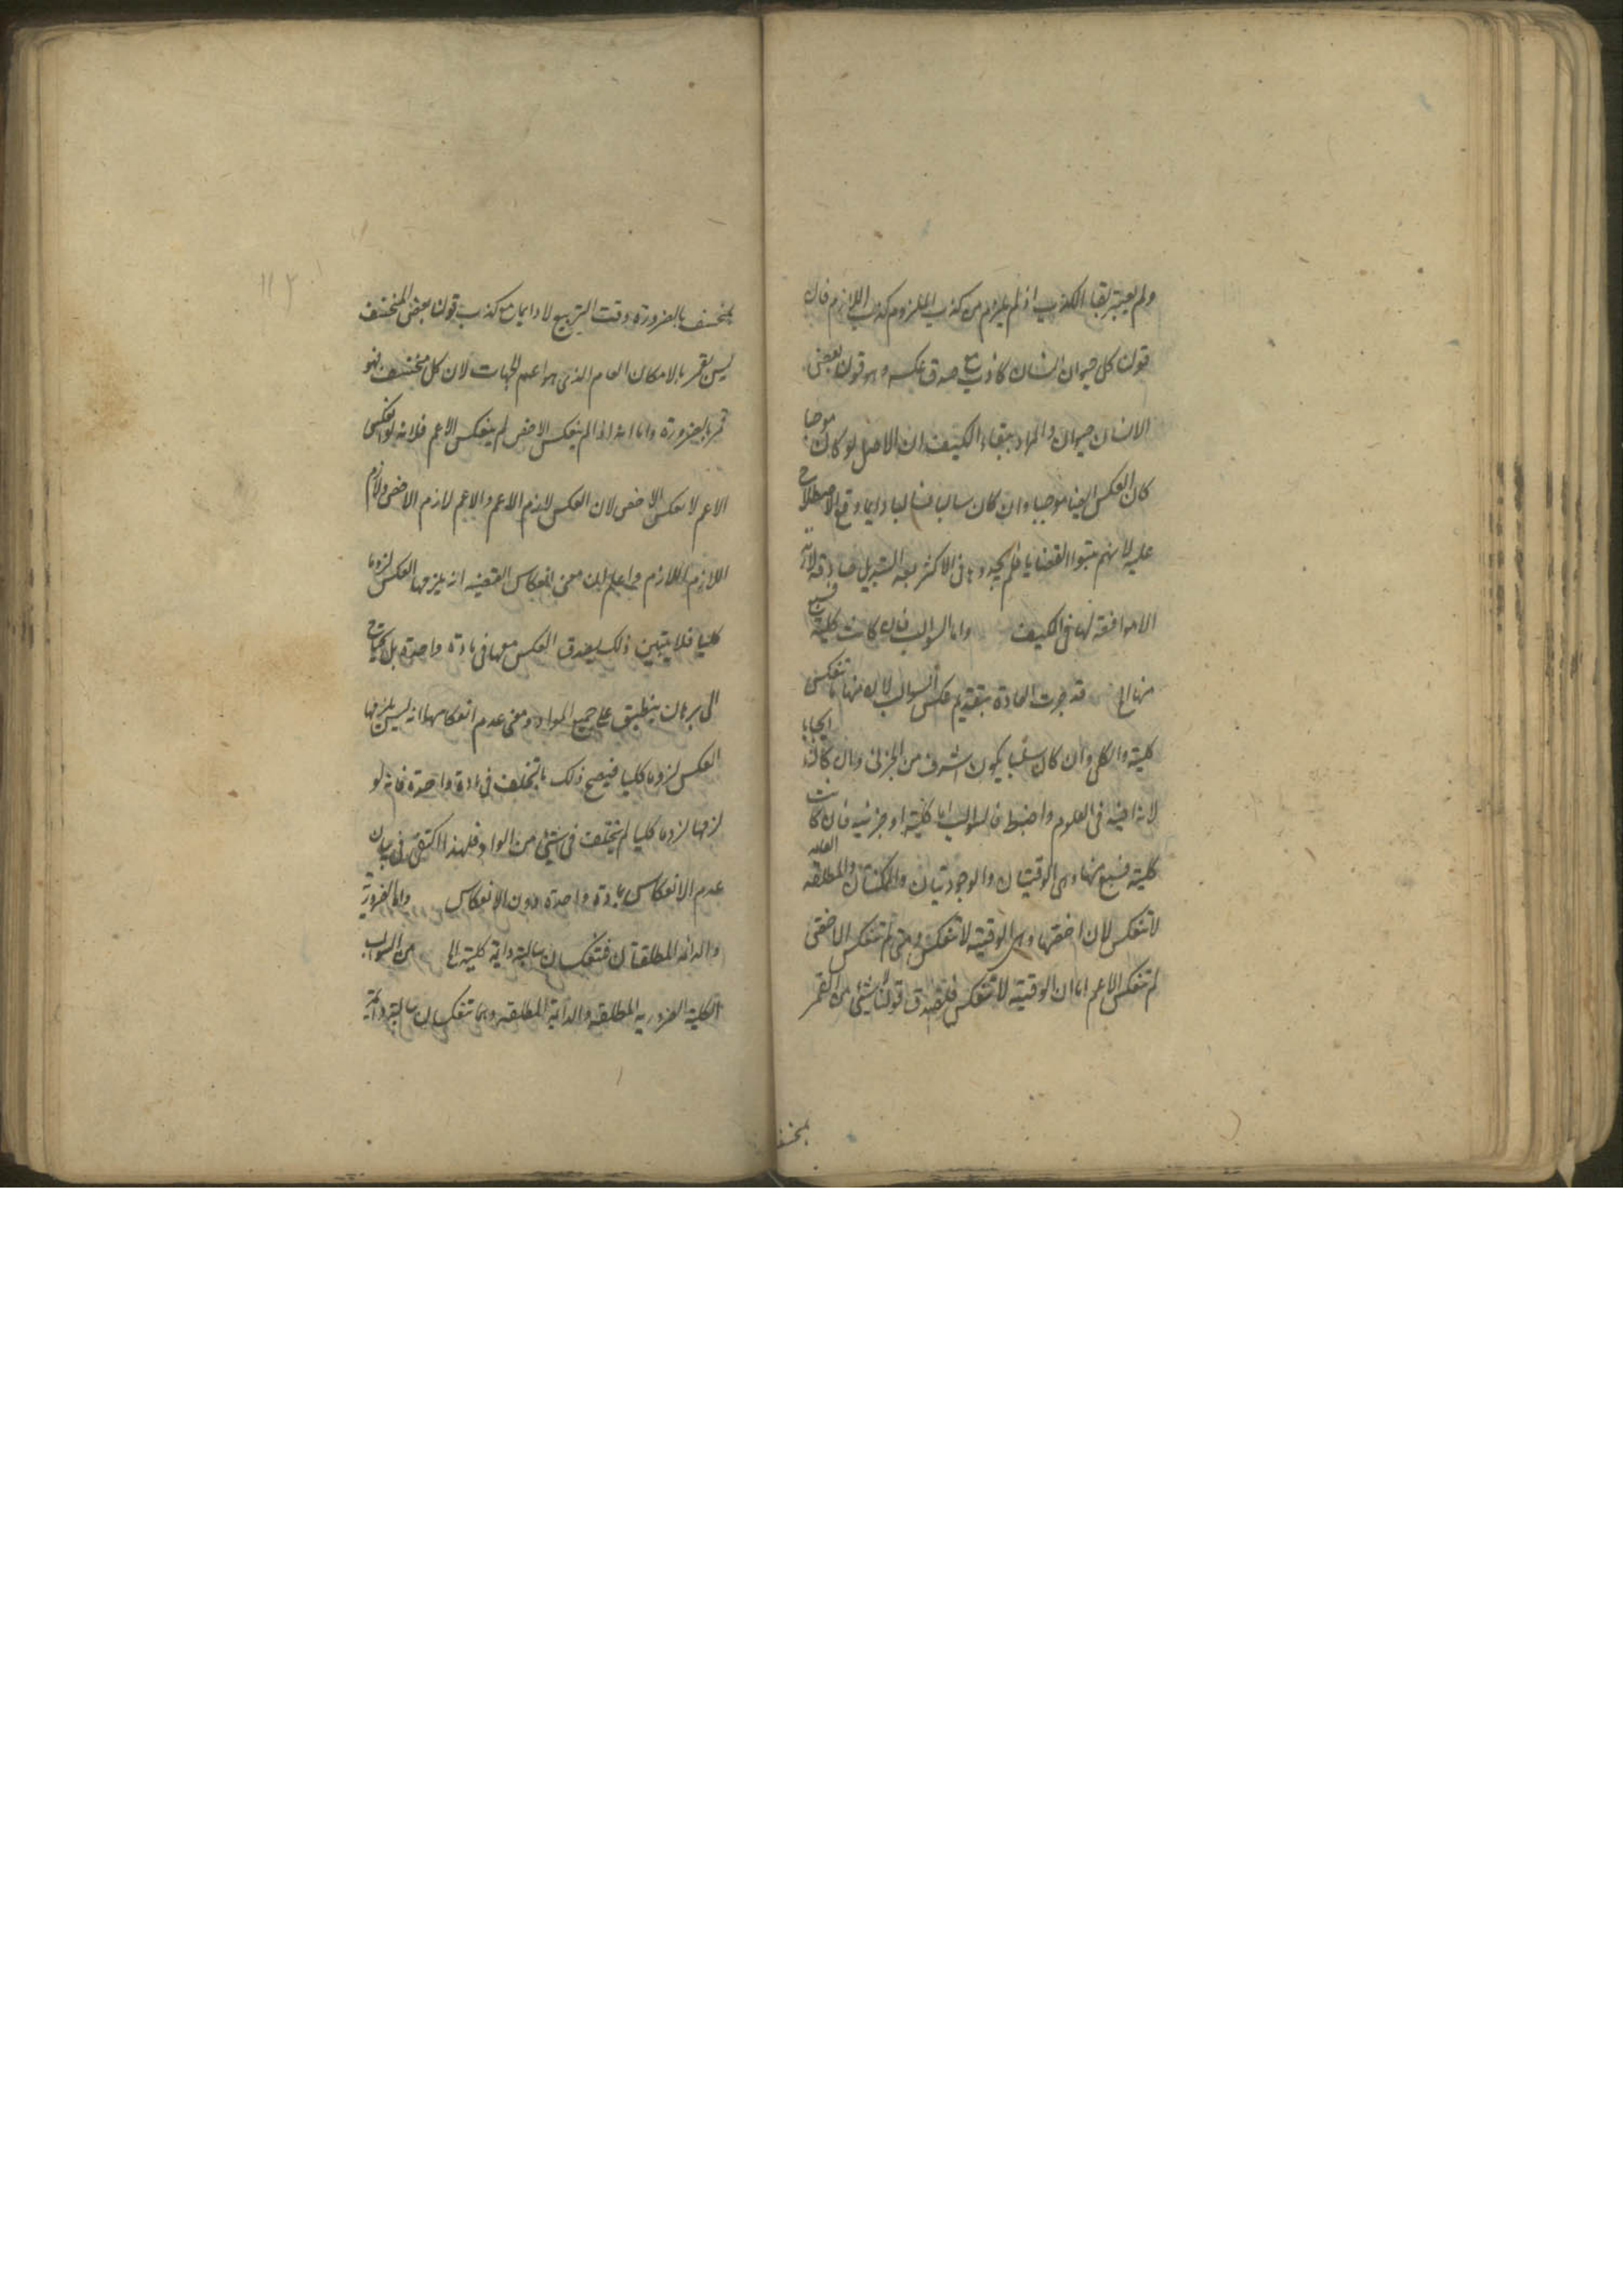 ولم يعتبر بقاء الكذب اذ لم يلزم من كذب الملزوم كذب اللازم فان
قولنا كل حيوان انسان كاذب مع صدق عكسه وهو قولنا بعض
الانسان حيوان والمراد ببقاء الكيف ان الاصل لو كان موجبا
كان العكس ايضا موجبا وان كان سالبا فسالبا وانما وقع الاصطلاح
عليه لانهم تتبعوا القضايا فلم يجدوها فى الاكثر بعد التبديل صادقة لازمة
الا موافقة لها فى الكيف واما السوالب فان كانت كلية فسبع
منها الخ قد جرت العادة بتقديم عكس السوالب لان منها ما تنعكس
كلية والكلى وان كان سلبا يكون اشرف من الجزئى وان كان ايجابا
لانه افيد فى العلوم واضبط فالسوالب اما كلية او جزئية فان كانت
كلية فسبع منها وهى الوقتيتان والوجوديتان والممكنتان والمطلقة العامة
لا تنعكس لان اخصها وهى الوقتية لا تنعكس ومتى لم تنعكس الاخص
لم تنعكس الاعم اما ان الوقتية لا تنعكس فلصدق قولنا لا شئ من القمر
بمنخسف
بمنخسف بالضرورة وقت التربيع لا دايما مع كذب قولنا بعض المنخسف
ليس بقمر بالامكان العام الذى هو اعم الجهات لان كل منخسف فهو
قمر بالضرورة واما انه اذا لم ينعكس الاخص لم ينعكس الاعم فلانه لو انعكس
الاعم لانعكس الاخص لان العكس لازم الاعم والاعم لازم الاخص ولازم
اللازم لازم واعلم ان معنى انعكاس القضية انه يلزمها العكس لزوما
كليا فلا يتبين ذلك بصدق العكس معها فى مادة واحدة بل يحتاج
الى برهان ينطبق على جميع المواد ومعنى عدم انعكاسها انه ليس يلزمها
العكس لزوما كليا فيصح ذلك بالتخلف فى مادة واحدة فانه لو
لزمها لزوما كليا لم يتخلف فى شئ من المواد فلهذا اكتفى فى بيان
عدم الانعكاس بمادة واحدة دون الانعكاس واما الضرورية
والدائمة المطلقتان فتنعكسان سالبة دائمة كلية الخ من السوالب
الكلية الضرورية المطلقة والدائمة المطلقة وهما تنعكسان سالبة دائمة